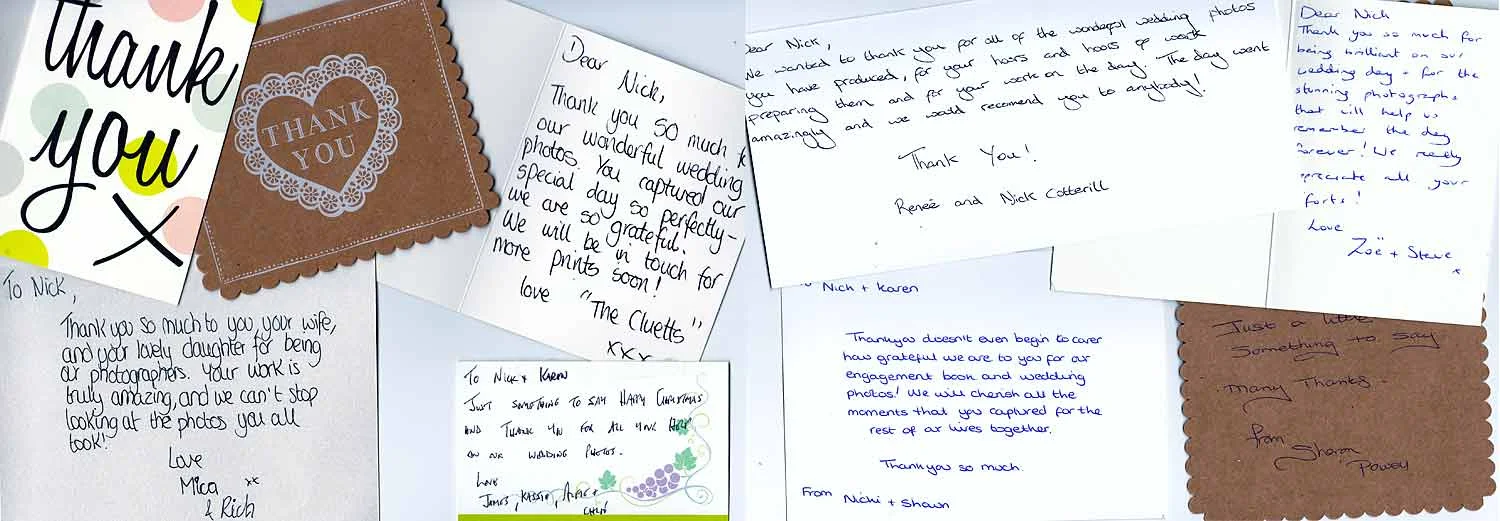 thank
you
X
THANK
YOU
Dear Nick,
Thank you so much
our wonderful wedding
photos. You captured our
special day so perfectly-
we are so grateful!
We will be in touch for
more prints soon!
love "The Cluetts"
xxx
To Nick,
Thank you so much to you, your wife,
and your lovely daughter for being
our photographers. Your work is
truly amazing, and we can't stop
looking at the photos you all
took!
Love
Mica xx
& Rich
To Nick + Karen
Just something to say Happy Christmas
and thank you for all your help
on our wedding photos.
Love
James, Kassie,
ear Nick,
We wanted to thank you for all of the wonderful wedding photos
you have produced, for your hours and hours of work
preparing them and for your work on the day. The day went
amazingly and we would recomend you to anybody!
Thank You!
Reneé and Nick Cotterill
Dear Nick
Thank you so much for
being brilliant on our
wedding day - for the
stunning photographs
that will help us
remember the day
forever! We really
preciate all your
forts!
Love
Zoë + Steve
x
Nick + Karen
Thankyou doesn't even begin to cover
how grateful we are to you for our
engagement book and wedding
photos! We will cherish all the
moments that you captured for the
rest of our lives together.
Thankyou so much.
From Nicki + Shawn
Just a little
Something to say
Many Thanks.
from
Sharon
Powey